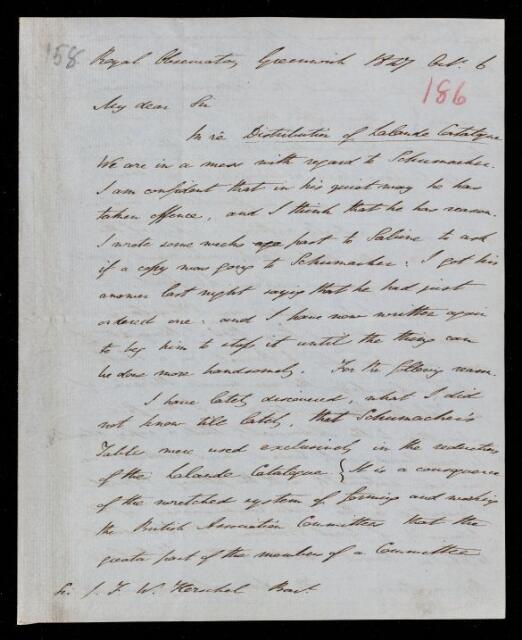 158
Royal Observatory, Greenwich 1847 Oct. 6
186
My dear Sir
In re Distribution of Lalande Catalogue
We are in a mess with regard to Schumacher.
I am confident that in his quiet way he has
taken offence, and I think that he has reason.
I wrote some weeks ago past to Sabine to ask
if a copy was going to Schumacher: I got his
answer last night saying that he had just
ordered one: and I have now written again
to beg him to stop it until the thing can
be done more handsomely. For the following reason.
I have lately discovered, what I did
not know till lately, that Schumacher's
Tables were used exclusively in the reduction
of the Lalande Catalogue. } It is a consequence
of the wretched system of forming and making
the British Association Committees that the
greater part of the members of a Committee
Sir J. F. W. Herschel Bart.